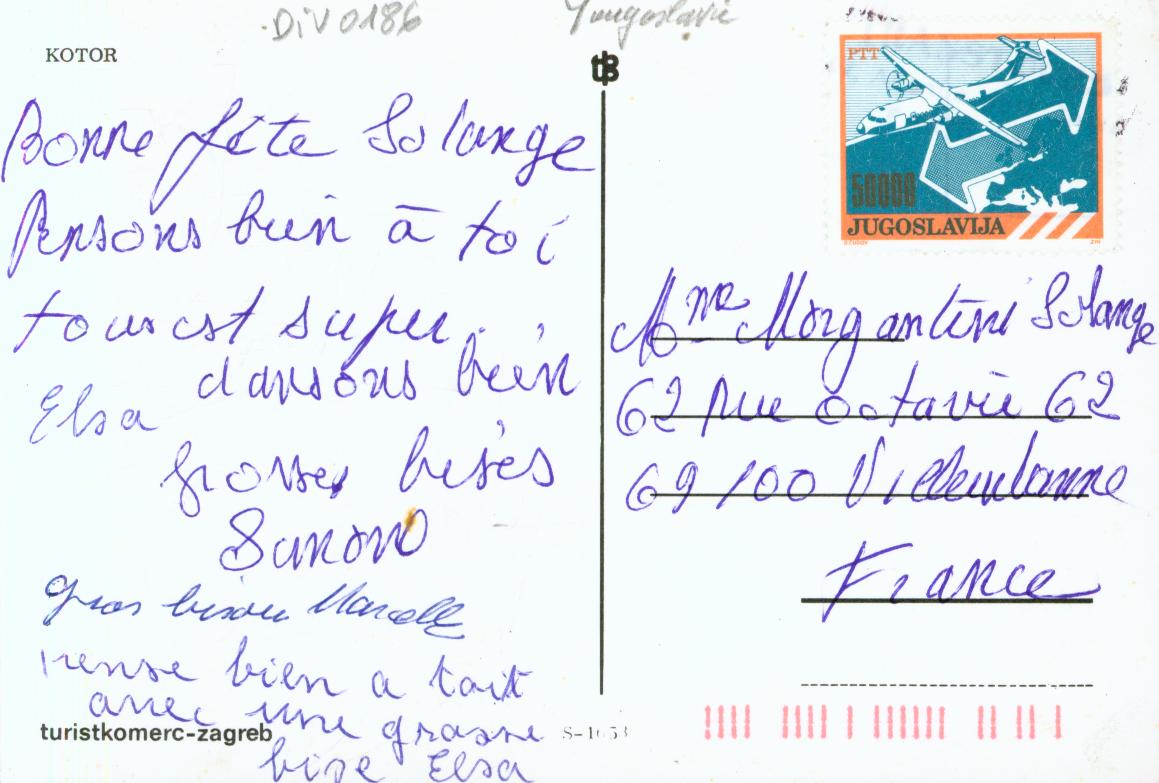 DiV0186
Yougoslavie
KOTOR
Bonne fête Solange
Pensons bien à toi
tous est super.
dansons bien
Elsa
grosses bises
gros bisou Marcelle
pense bien a toit
avec une grosse
bise Elsa
turistkomerc-zagreb
S-1653
PTT
50000
JUGOSLAVIJA
Mme Morgantini Solange
62 rue octavie 62
69100 Villeurbanne
France